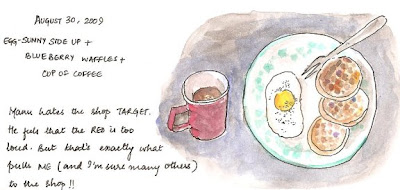 AUGUST 30, 2009
EGG-SUNNY SIDE UP +
BLUEBERRY WAFFLES +
CUP OF COFFEE
Manu hates the shop TARGET.
He feels that the RED is too
loud. But that's exactly what
pulls ME (and I'm sure many others)
to the shop!!